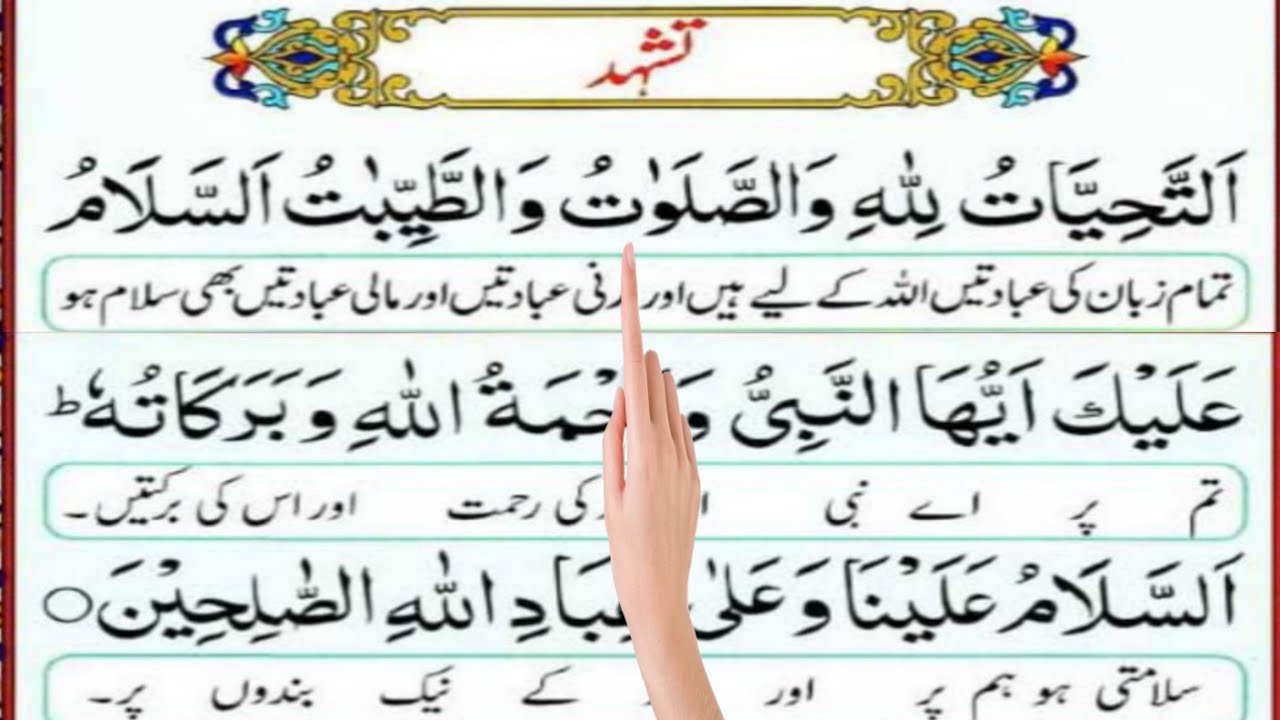 تشهد
اَلتَّحِيَّاتُ لِلّٰهِ وَالصَّلَوٰتُ وَالطَّيِّبٰتُ اَلسَّلَامُ
تمام زبان کی عبادتیں اللہ کے لیے ہیں اور عبادتیں اور مالی عبادتیں بھی سلام ہو
عَلَيْكَ اَيُّهَا النَّبِىُّ اللّٰهِ وَبَرَكَاتُهٗ ؕ
تم پر اے نبی کی رحمت اور اس کی برکتیں۔
اَلسَّلَامُ عَلَيْنَا وَعَلٰى اللّٰهِ الصّٰلِحِيْنَ ○
سلامتی ہو ہم پر اور کے نیک بندوں پر۔